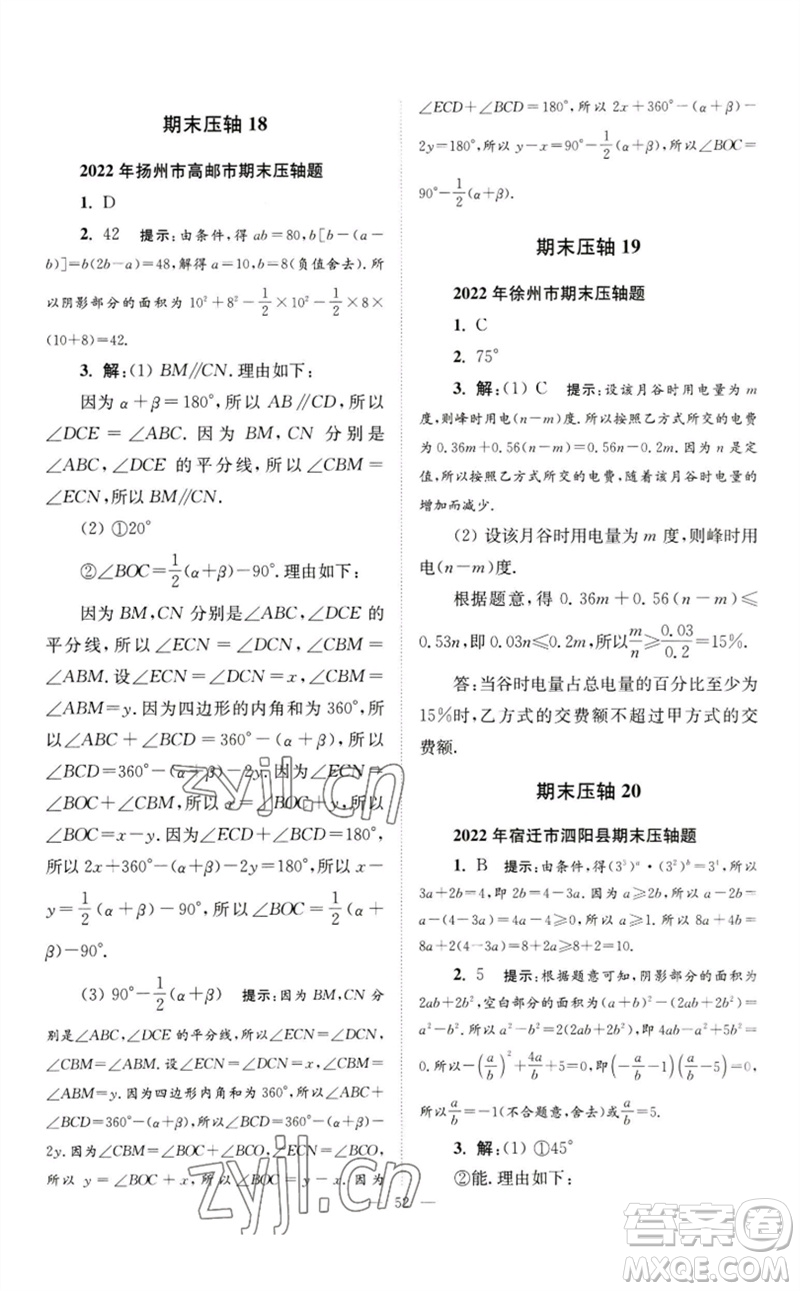 期末压轴 18
2022 年扬州市高邮市期末压轴题
1. D
2. 42 提示:由条件,得 ab=80,b[b-(a-
b)]=b(2b-a)=48,解得 a=10,b=8(负值舍去).所
以阴影部分的面积为 10²+8²-1/2×10²-1/2×8×
(10+8)=42.
3. 解:(1) BM∥CN.理由如下:
因为 α+β=180°,所以 AB∥CD,所以
∠DCE=∠ABC. 因为 BM,CN 分别是
∠ABC,∠DCE 的平分线,所以∠CBM=
∠ECN,所以 BM∥CN.
(2) ①20°
②∠BOC=1/2(α+β)-90°.理由如下:
因为 BM,CN 分别是∠ABC,∠DCE 的
平分线,所以∠ECN=∠DCN,∠CBM=
∠ABM. 设∠ECN=∠DCN=x,∠CBM=
∠ABM=y.因为四边形的内角和为 360°,所
以∠ABC+∠BCD=360°-(α+β),所以
∠BCD=360°-(α+β)-2y.因为∠ECN=
∠BOC+∠CBM,所以 x=∠BOC+y,
所以 2x+360°-(α+β)-2y=180°,所以 x-
y=1/2(α+β)-90°,所以∠BOC=1/2(α+
β)-90°.
(3) 90°-1/2(α+β) 提示:因为 BM,CN 分
别是∠ABC,∠DCE 的平分线,所以∠ECN=∠DCN,
∠CBM=∠ABM. 设∠ECN=∠DCN=x,∠CBM=
∠ABM=y. 因为四边形内角和为 360°,所以∠ABC+
∠BCD=360°-(α+β),所以∠BCD=360°-(α+β)-
2y. 因为∠CBM=∠BOC+∠BCO,∠ECN=∠BCO,
所以 y=∠BOC+x,所以∠BOC=y-x.因为
∠ECD+∠BCD=180°,所以 2x+360°-(α+β)-
2y=180°,所以 y-x=90°-1/2(α+β),所以∠BOC=
90°-1/2(α+β).
期末压轴 19
2022 年徐州市期末压轴题
1. C
2. 75°
3. 解:(1) C 提示:设该月谷时用电量为 m
度,则峰时用电(n-m)度.所以按照乙方式所交的电费
为 0.36m+0.56(n-m)=0.56n-0.2m.因为 n 是定
值,所以按照乙方式所交的电费,随着该月谷时电量的
增加而减少.
(2) 设该月谷时用电量为 m 度,则峰时用
电(n-m)度.
根据题意,得 0.36m+0.56(n-m)≤
0.53n,即 0.03n≤0.2m,所以m/n≥0.03/0.2=15%.
答:当谷时电量占总电量的百分比至少为
15%时,乙方式的交费额不超过甲方式的交
费额.
期末压轴 20
2022 年宿迁市泗阳县期末压轴题
1. B 提示:由条件,得(3³)ᵃ·(3²)ᵇ=3⁴,所以
3a+2b=4,即 2b=4-3a.因为 a-2b≥0,所以
a-(4-3a)=4a-4≥0,所以 a≥1.所以 8a+4b=
8a+2(4-3a)=8+2a≥8+2=10.
2. 5 提示:根据题意可知,阴影部分的面积为
2ab+2b²,空白部分的面积为(a+b)²-(2ab+2b²)=
a²-b².所以 2(2ab+2b²)=a²-b²,即 4ab-a²+5b²=
0.所以-(a/b)²+4a/b+5=0,即(-a/b-1)(a/b-5)=0,
所以a/b=-1(不合题意,舍去)或a/b=5.
3. 解:(1) ①45°
②能.理由如下:
52 —
zyjl.cn
zyjl.cn
答案圈
MXQE.COM